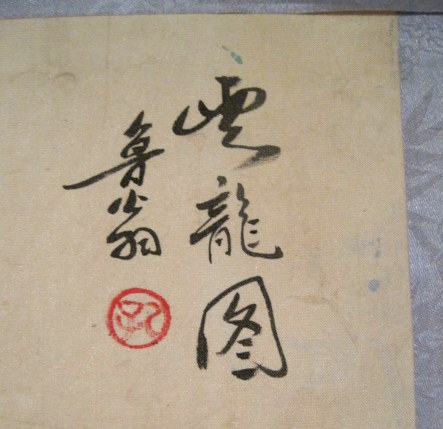 雲龍图
魯翁